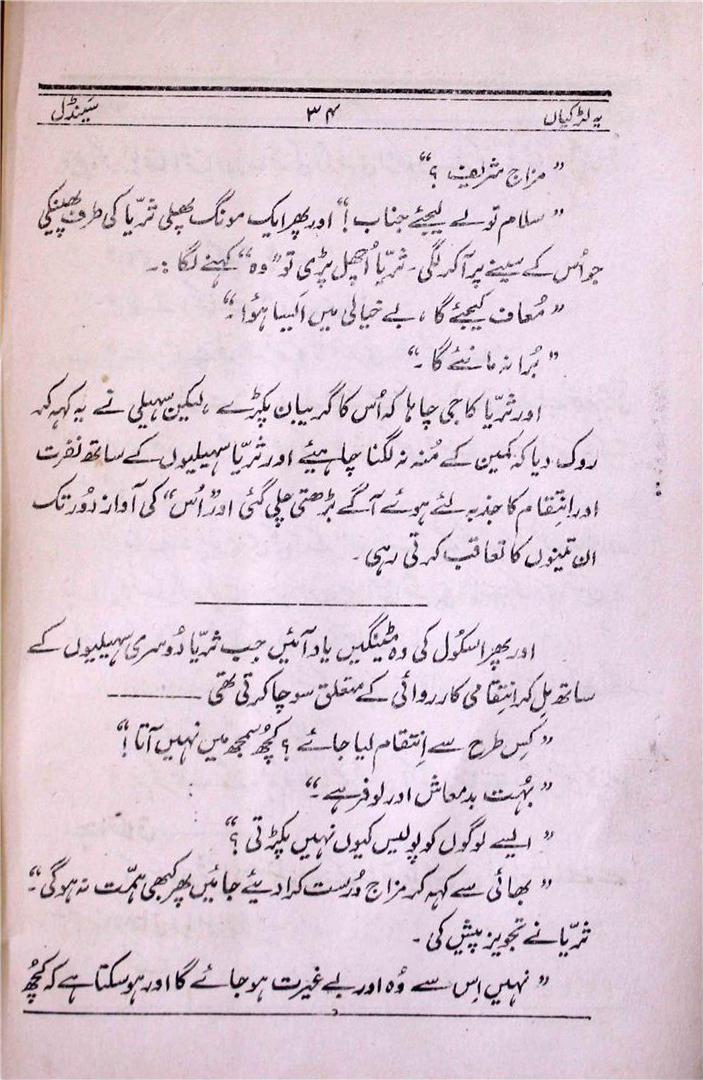 یہ لڑکیاں ۳۴ سینڈل
”مزاج شریف ؟“
”سلام تو لے لیجئے جناب !“ اور پھر ایک مونگ پھلی ثریّا کی طرف پھینکی
جو اُس کے سینے پر آکر لگی۔ ثریّا اُچھل پڑی تو ”وہ“ کہنے لگا :۔
”مُعاف کیجئے گا ، بے خیالی میں اَیسا ہؤا۔“
”بُرا نہ مانئے گا ۔“
اور ثریّا کا جی چاہا کہ اُس کا گریبان پکڑے ، لیکن سہیلی نے یہ کہہ کر
روک دیا کہ کمین کے مُنہ نہ لگنا چاہیئے اور ثریّا سہیلیوں کے ساتھ نفرت
اور اِنتقام کا جذبہ لئے ہوئے آگے بڑھتی چلی گئی اور ”اُس“ کی آواز دُور تک
ان تینوں کا تعاقب کرتی رہی۔
اور پھر اسکُول کی وہ مٹینگیں یاد آئیں جب ثریّا دُوسری سہیلیوں کے
ساتھ مِل کر اِنتقامی کارروائی کے متعلق سوچا کرتی تھی ———
”کِس طرح سے اِنتقام لیا جائے ؟ کچُھ سمجھ میں نہیں آتا !“
”بہُت بدمعاش اور لوفر ہے۔“
”ایسے لوگوں کو پولیس کیوں نہیں پکڑتی ؟“
”بھائی سے کہہ کر مزاج دُرست کرا دیئے جائیں پھر کبھی ہمّت نہ ہوگی۔“
ثریّا نے تجویز پیش کی۔
”نہیں اِس سے وُہ اور بے غیرت ہو جائے گا اور ہو سکتا ہے کہ کچُھ